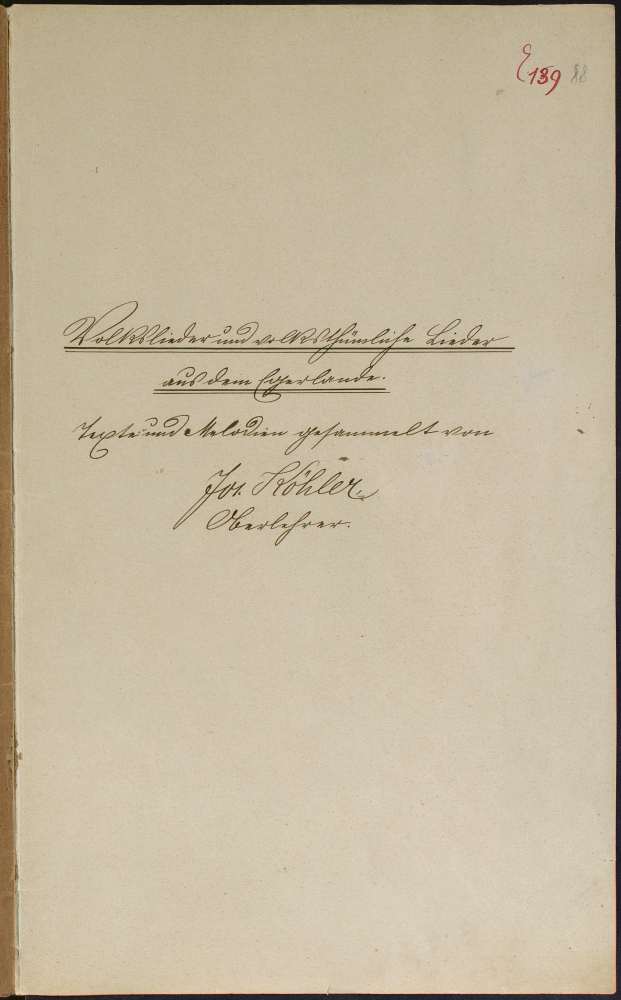 E 139 88
Volkslieder und volksthümliche Lieder
aus dem Egerlande.
Texte und Melodien gesammelt von
Jos. Köhler,
Oberlehrer.